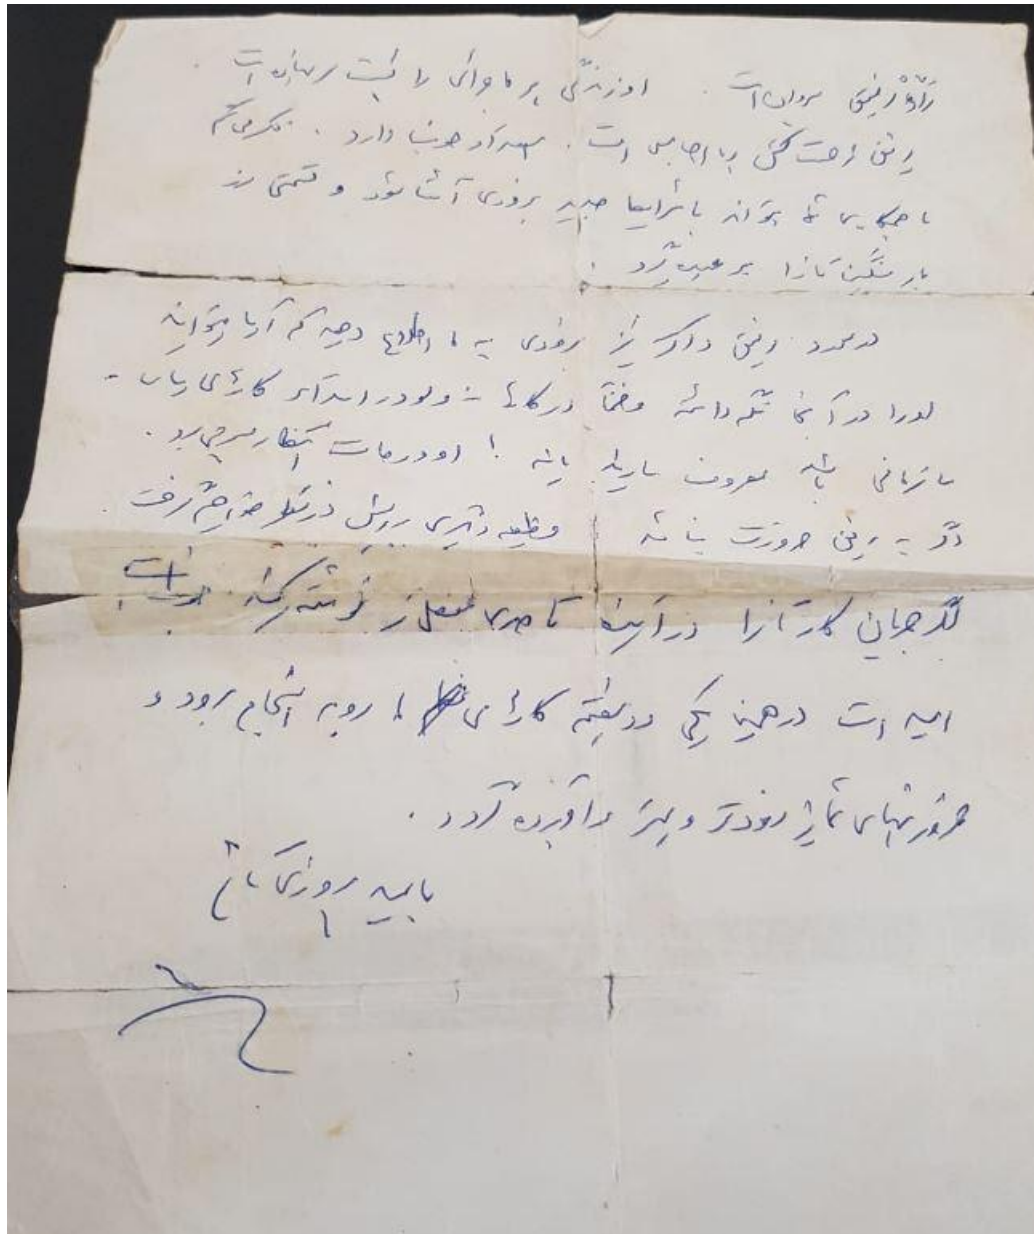 رفیق روان است. او زندگی پر ماجرائی را پشت سر نهاده است
رفیق زحمت کش و با احساس است. استعداد خوب دارد. فکر می کنم
با همکاری شما بتواند با شرایط جدید بزودی آشنا شود و قسمتی از
بار سنگین شما را بر عهده گیرد.
در مورد رفیق نیز بزودی به ما اطلاع دهید که آیا میتوانید
او را در آنجا نگه داشته و ضمناً در کارها ولو در ابتدا کارهای
سازمانی باشد مصروف سازید یا نه؟ او در حالت انتظار بسر می برد.
اگر به رفیق ضرورت نباشد وظیفه دیگری برایش در نظر خواهیم گرفت.
جریان کار تانرا در آینده تا حدی مفصل تر نوشته کنید خوب است.
امید است در همین یکی دو هفته کارهای ما رو به انجام برود و
ضرورتهای شما نیز زودتر و بهتر برآورده گردد.
به امید پیروزی تان